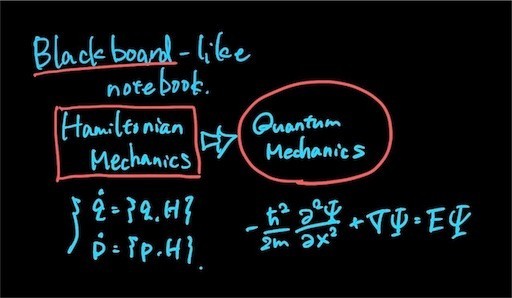 Blackboard-like
notebook.
Hamiltonian
Mechanics
⇒
Quantum
Mechanics
{ q̇ = {q, H}
ṗ = {p, H}.
-ħ²/2m ∂²Ψ/∂x² + VΨ = EΨ